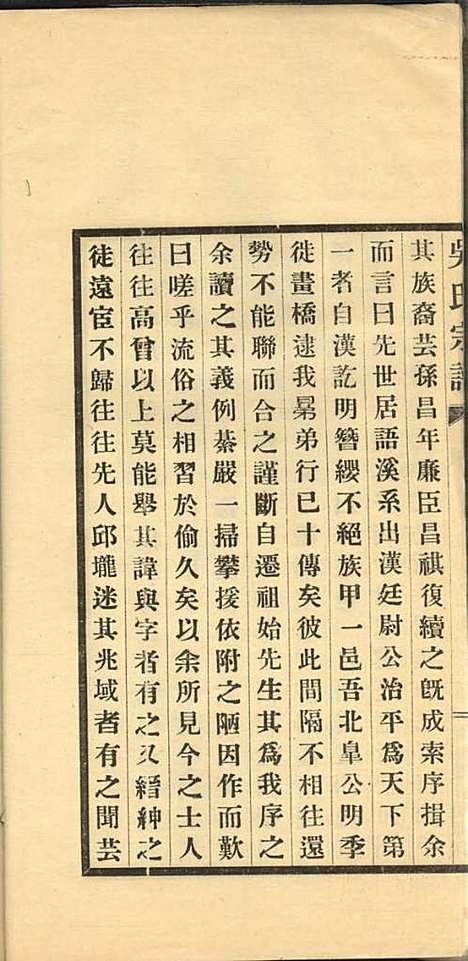 吳氏宗譜
其族裔芸孫昌年廉臣昌祺復續之旣成索序揖余
而言曰先世居語溪系出漢廷尉公治平爲天下第
一者自漢訖明簪纓不絕族甲一邑吾北臯公明季
徙畫橋逮我羣弟行已十傳矣彼此間隔不相往還
勢不能聯而合之謹斷自遷祖始先生其爲我序之
余讀之其義例綦嚴一掃攀援依附之陋因作而歎
曰嗟乎流俗之相習於偷久矣以余所見今之士人
往往高曾以上莫能舉其諱與字者有之又縉紳之
徒遠宦不歸往往先人邱壠迷其兆域者有之聞芸